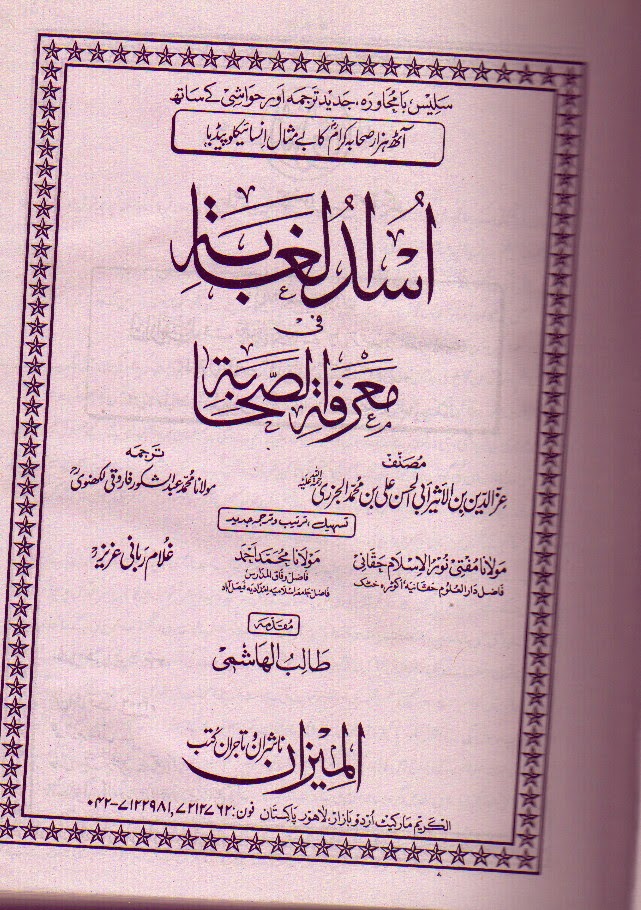 سلیس با محاورہ، جدید ترجمہ اور حواشی کے ساتھ
آٹھ ہزار صحابہ کرامؓ کا بے مثال انسائیکلوپیڈیا
اُسدُ الغابۃ
فی
معرفۃ الصّحابۃ
مصنّف
عزّالدین بن الاثیر ابی الحسن علی بن محمد الجزری رحمۃ اللہ علیہ
ترجمہ
مولانا محمد عبدالشکور فاروقی لکھنویؒ
تسہیل، ترتیب و ترجمہ جدید
مولانا مفتی نورالاسلام حقانی
فاضل دارالعلوم حقانیہ اکوڑہ خٹک
مولانا محمد احمد
فاضل وفاق المدارس
فاضل جامعہ اسلامیہ امدادیہ فیصل آباد
غلام ربانی عزیزؒ
مقدمہ
طالب الہاشمی
المیزان ناشران و تاجران کتب
الکریم مارکیٹ اردو بازار، لاہور پاکستان فون: ۷۲۱۲۷۶۲, ۷۱۲۲۹۸۱-۰۴۲